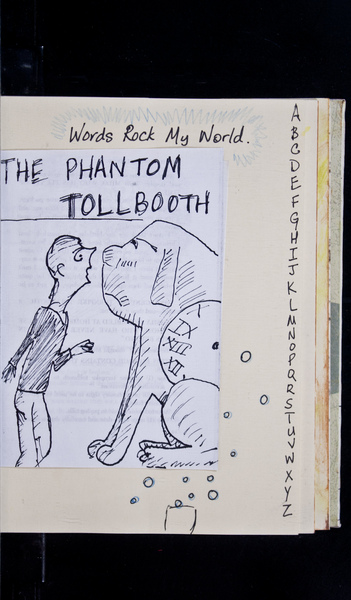 Words Rock My World.
THE PHANTOM
TOLLBOOTH
XI
XII
VI
A
B
C
D
E
F
G
H
I
J
K
L
M
N
O
P
Q
R
S
T
U
V
W
X
Y
Z